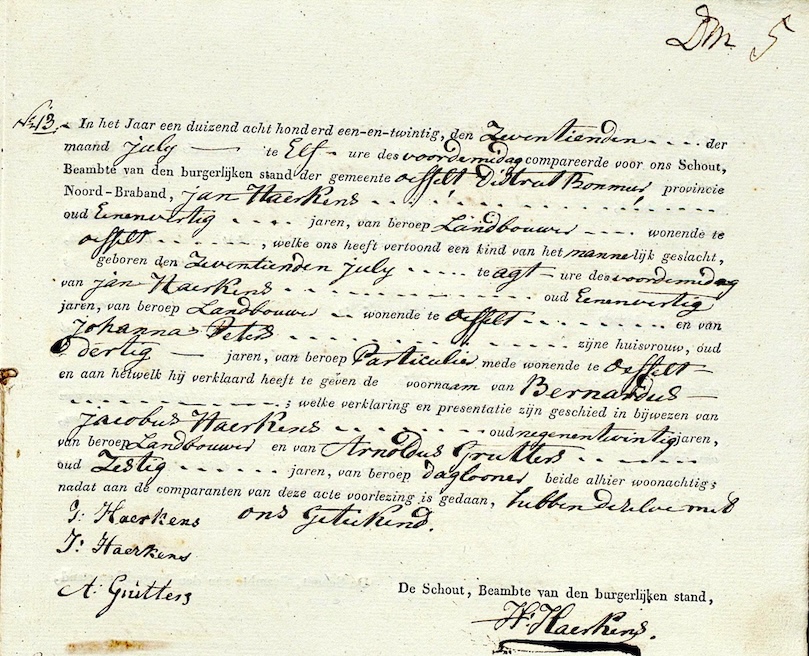 Dm. 5
No. 13. In het Jaar een duizend acht honderd een-en-twintig, den Zeventienden - - - - der
maand july — te Elf - ure des voordemidag compareerde voor ons Schout,
Beambte van den burgerlijken stand der gemeente oeffelt District provincie
Noord-Braband, jan Haerkens - - - - - - - - - -
oud Eenenvertig - - - - - jaren, van beroep Landbouwer - - - wonende te
oeffelt - - - - - , welke ons heeft vertoond een kind van het mannelijk geslacht,
geboren den Zeventienden july - - - - - te agt - ure des voordemidag
van jan Haerkens - - - - - - - - - - oud Eenenvertig
jaren, van beroep Landbouwer — wonende te oeffelt - - - - - - - en van
Johanna Peters - - - - - - - - - - zijne huisvrouw, oud
dertig — jaren, van beroep Particulier mede wonende te oeffelt
en aan hetwelk hij verklaard heeft te geven de voornaam van Bernardus —
- - - - - - - - - - ; welke verklaring en presentatie zijn geschied in bijwezen van
jacobus Haerkens - - - - - - - oud negenentwintig jaren,
van beroep Landbouwer en van Arnoldus Grutters - - - - -
oud Zestig - - - - - - - jaren, van beroep daglooner beide alhier woonachtig;
nadat aan de comparanten van deze acte voorlezing is gedaan, hebben dezelve met
ons geteekend.
J: Haerkens
J: Haerkens
A: Grutters
De Schout, Beambte van den burgerlijken stand,
H: Haerkens.